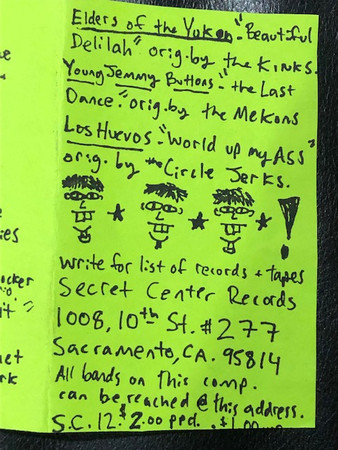 Elders of the Yukon-"Beautiful
Delilah" orig. by the Kinks.
Young Jemmy Buttons-"the Last
Dance" orig. by the Mekons
Los Huevos-"World up my Ass"
orig. by the Circle Jerks.
write for list of records + tapes
Secret Center Records
1008, 10th St. #277
Sacramento, CA. 95814
All bands on this comp.
can be reached @ this address.
S.C. 12. $2.00 ppd.
ies
ocker
it"
net
rk